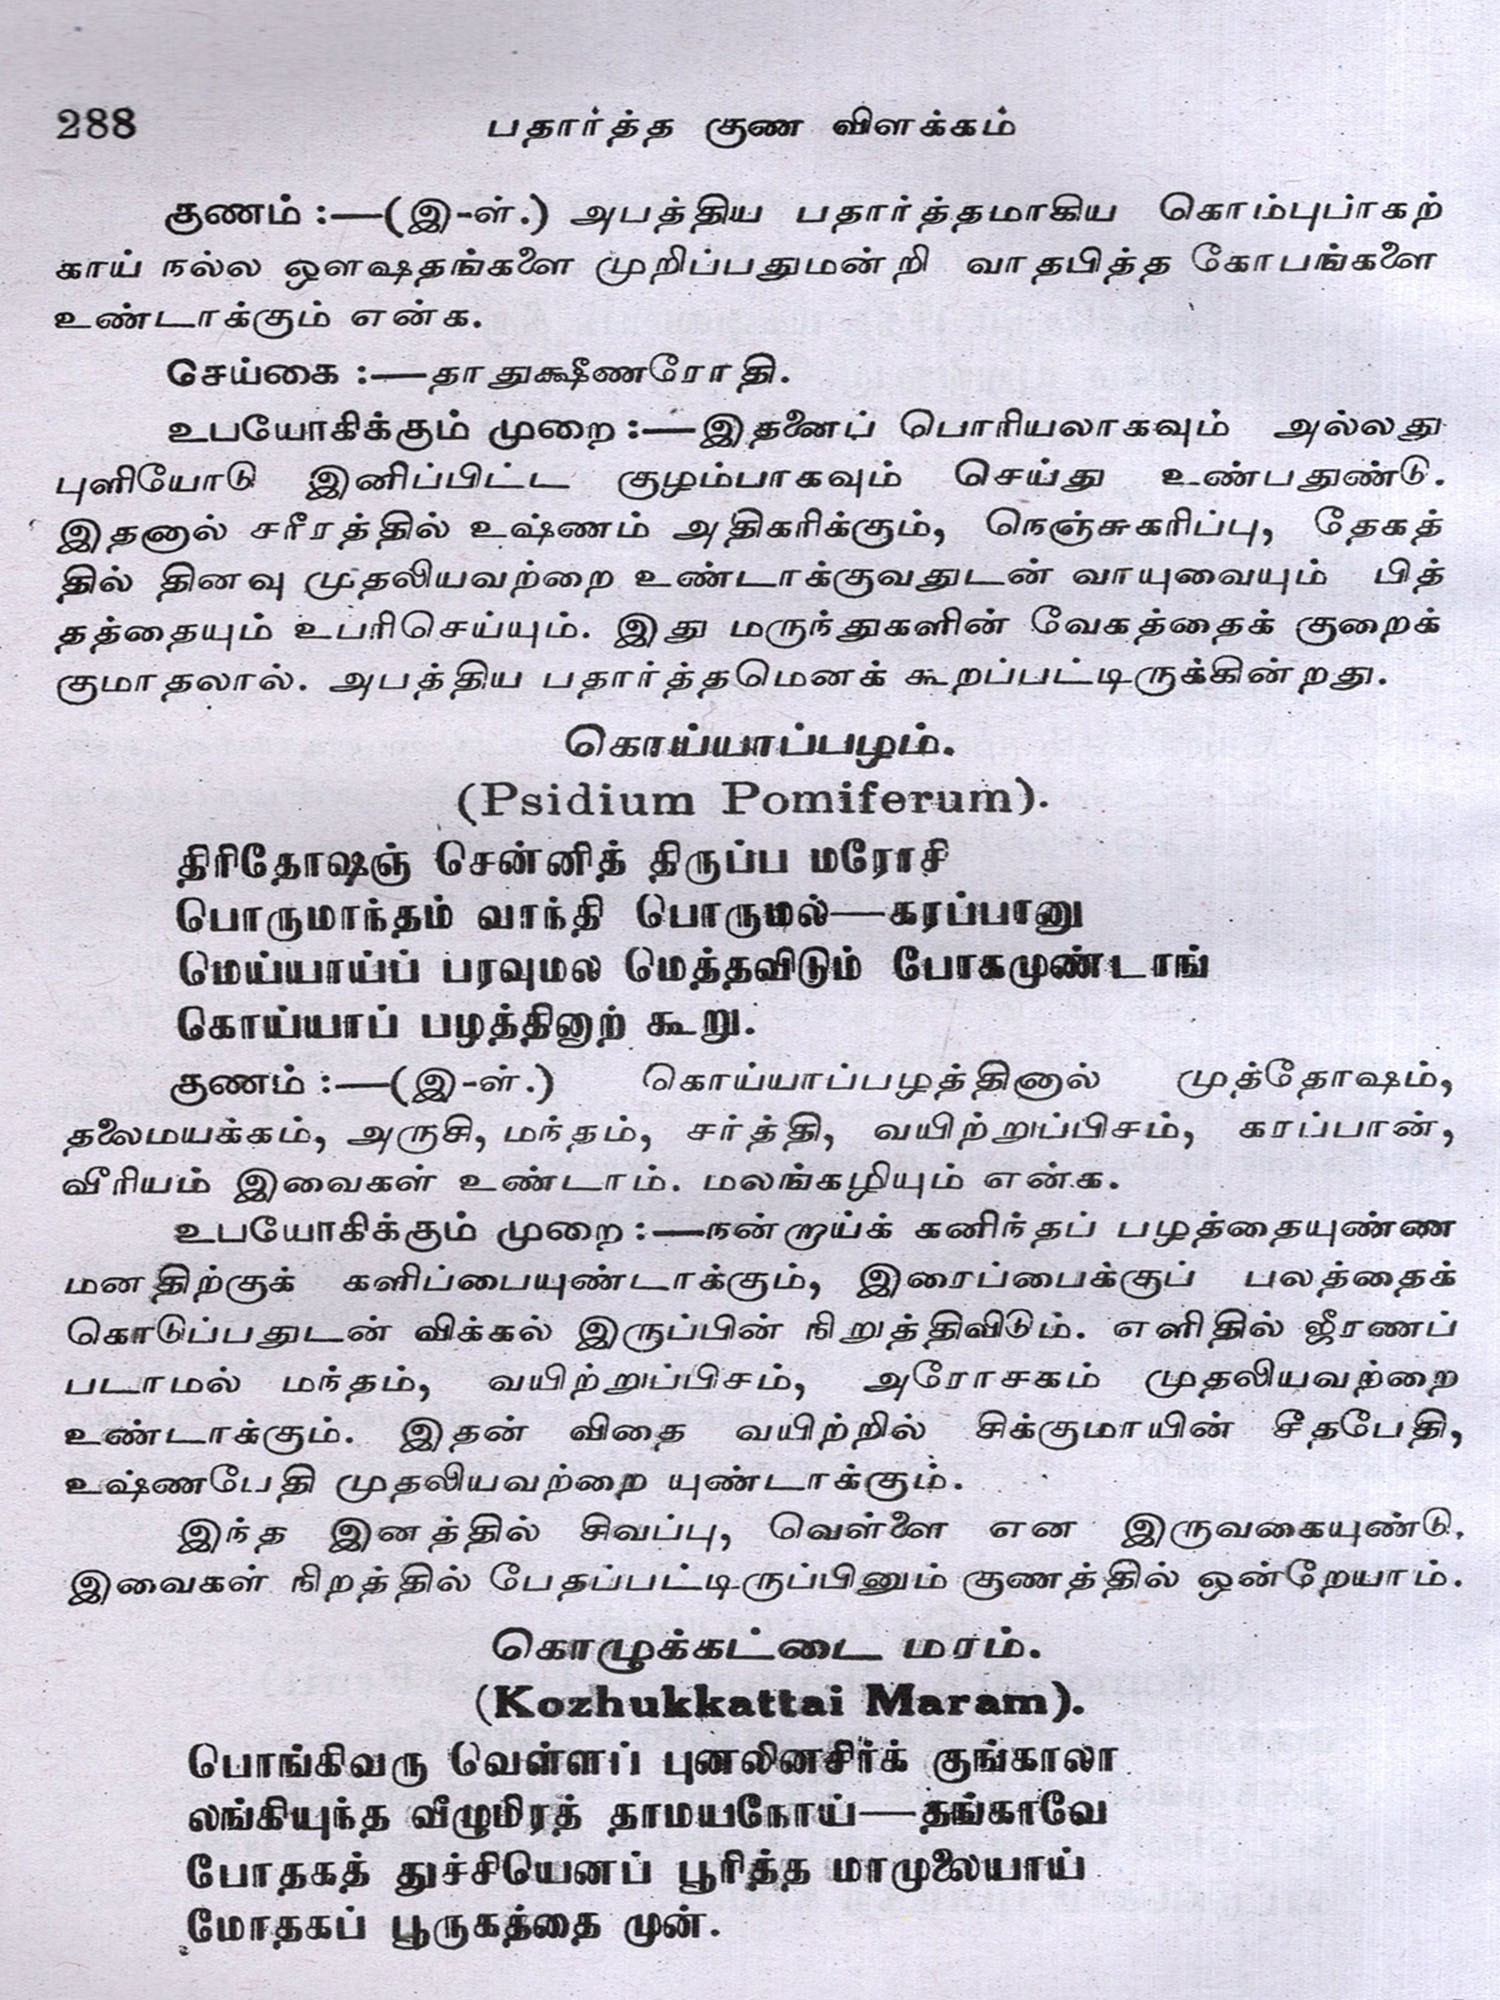 288 பதார்த்த குண விளக்கம்
குணம் :—(இ-ள்.) அபத்திய பதார்த்தமாகிய கொம்புபாகற்
காய் நல்ல ஔஷதங்களை முறிப்பதுமன்றி வாதபித்த கோபங்களை
உண்டாக்கும் என்க.
செய்கை :—தாதுக்ஷீணரோதி.
உபயோகிக்கும் முறை :—இதனைப் பொரியலாகவும் அல்லது
புளியோடு இனிப்பிட்ட குழம்பாகவும் செய்து உண்பதுண்டு.
இதனால் சரீரத்தில் உஷ்ணம் அதிகரிக்கும், நெஞ்சுகரிப்பு, தேகத்
தில் தினவு முதலியவற்றை உண்டாக்குவதுடன் வாயுவையும் பித்
தத்தையும் உபரிசெய்யும். இது மருந்துகளின் வேகத்தைக் குறைக்
குமாதலால். அபத்திய பதார்த்தமெனக் கூறப்பட்டிருக்கின்றது.
கொய்யாப்பழம்.
(Psidium Pomiferum).
திரிதோஷஞ் சென்னித் திருப்ப மரோசி
பொருமாந்தம் வாந்தி பொருமல்—கரப்பானு
மெய்யாய்ப் பரவுமல மெத்தவிடும் போகமுண்டாங்
கொய்யாப் பழத்தினாற் கூறு.
குணம் :—(இ-ள்.) கொய்யாப்பழத்தினால் முத்தோஷம்,
தலைமயக்கம், அருசி, மந்தம், சர்த்தி, வயிற்றுப்பிசம், கரப்பான்,
வீரியம் இவைகள் உண்டாம். மலங்கழியும் என்க.
உபயோகிக்கும் முறை :—நன்றாய்க் கனிந்தப் பழத்தையுண்ண
மனதிற்குக் களிப்பையுண்டாக்கும், இரைப்பைக்குப் பலத்தைக்
கொடுப்பதுடன் விக்கல் இருப்பின் நிறுத்திவிடும். எளிதில் ஜீரணப்
படாமல் மந்தம், வயிற்றுப்பிசம், அரோசகம் முதலியவற்றை
உண்டாக்கும். இதன் விதை வயிற்றில் சிக்குமாயின் சீதபேதி,
உஷ்ணபேதி முதலியவற்றை யுண்டாக்கும்.
இந்த இனத்தில் சிவப்பு, வெள்ளை என இருவகையுண்டு.
இவைகள் நிறத்தில் பேதப்பட்டிருப்பினும் குணத்தில் ஒன்றேயாம்.
கொழுக்கட்டை மரம்.
(Kozhukkattai Maram).
பொங்கிவரு வெள்ளப் புனலினசிர்க் குங்காலா
லங்கியுந்த வீழுமிரத் தாமயநோய்—தங்காவே
போதகத் துச்சியெனப் பூரித்த மாமுலையாய்
மோதகப் பூருகத்தை முன்.